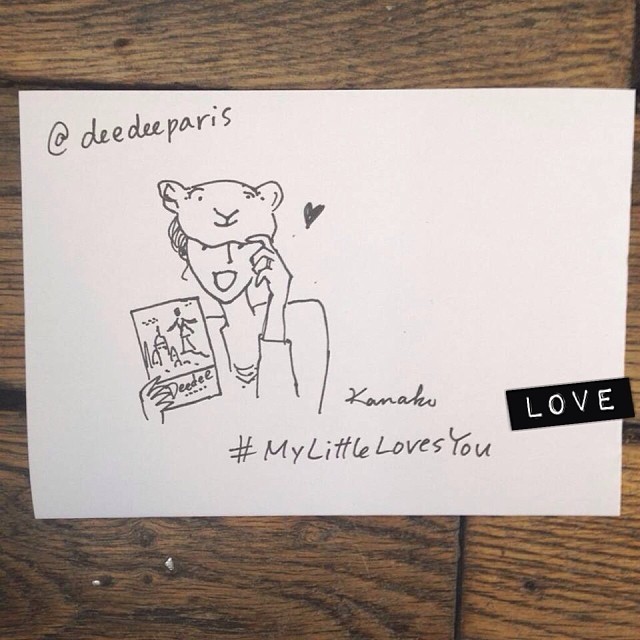 @deedeeparis
Deedee
Kanako
LOVE
#MyLittleLovesYou